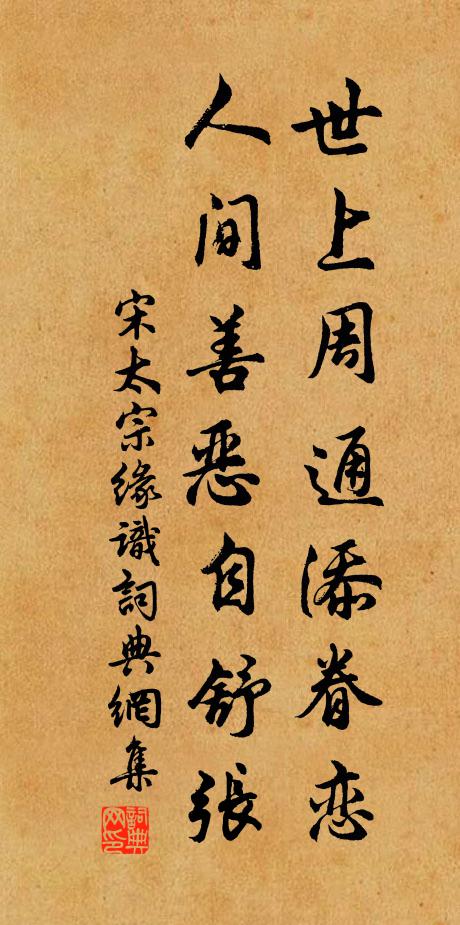 世上周通添眷恋
人间善恶自舒张
宋太宗缘識詞典網集
詞典网印